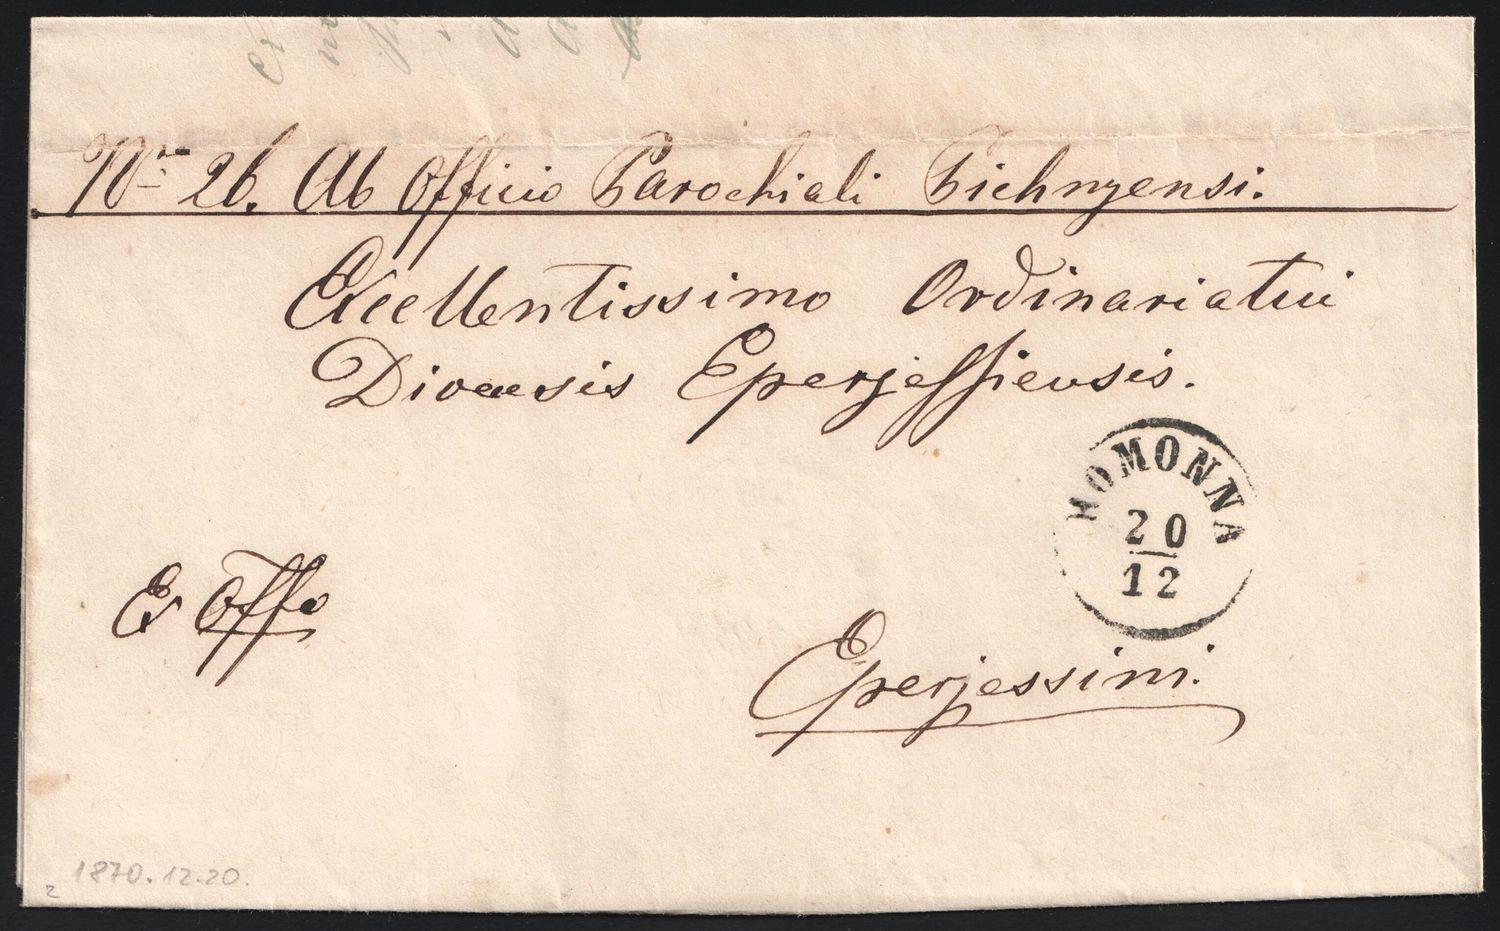 Nrus 26. Ab Officio Parochiali Pichnyensi.
Excellentissimo Ordinariatui
Dioecesis Eperjessiensis.
HOMONNA
20
12
Ex Offo
Eperjessini.
1870.12.20.
2